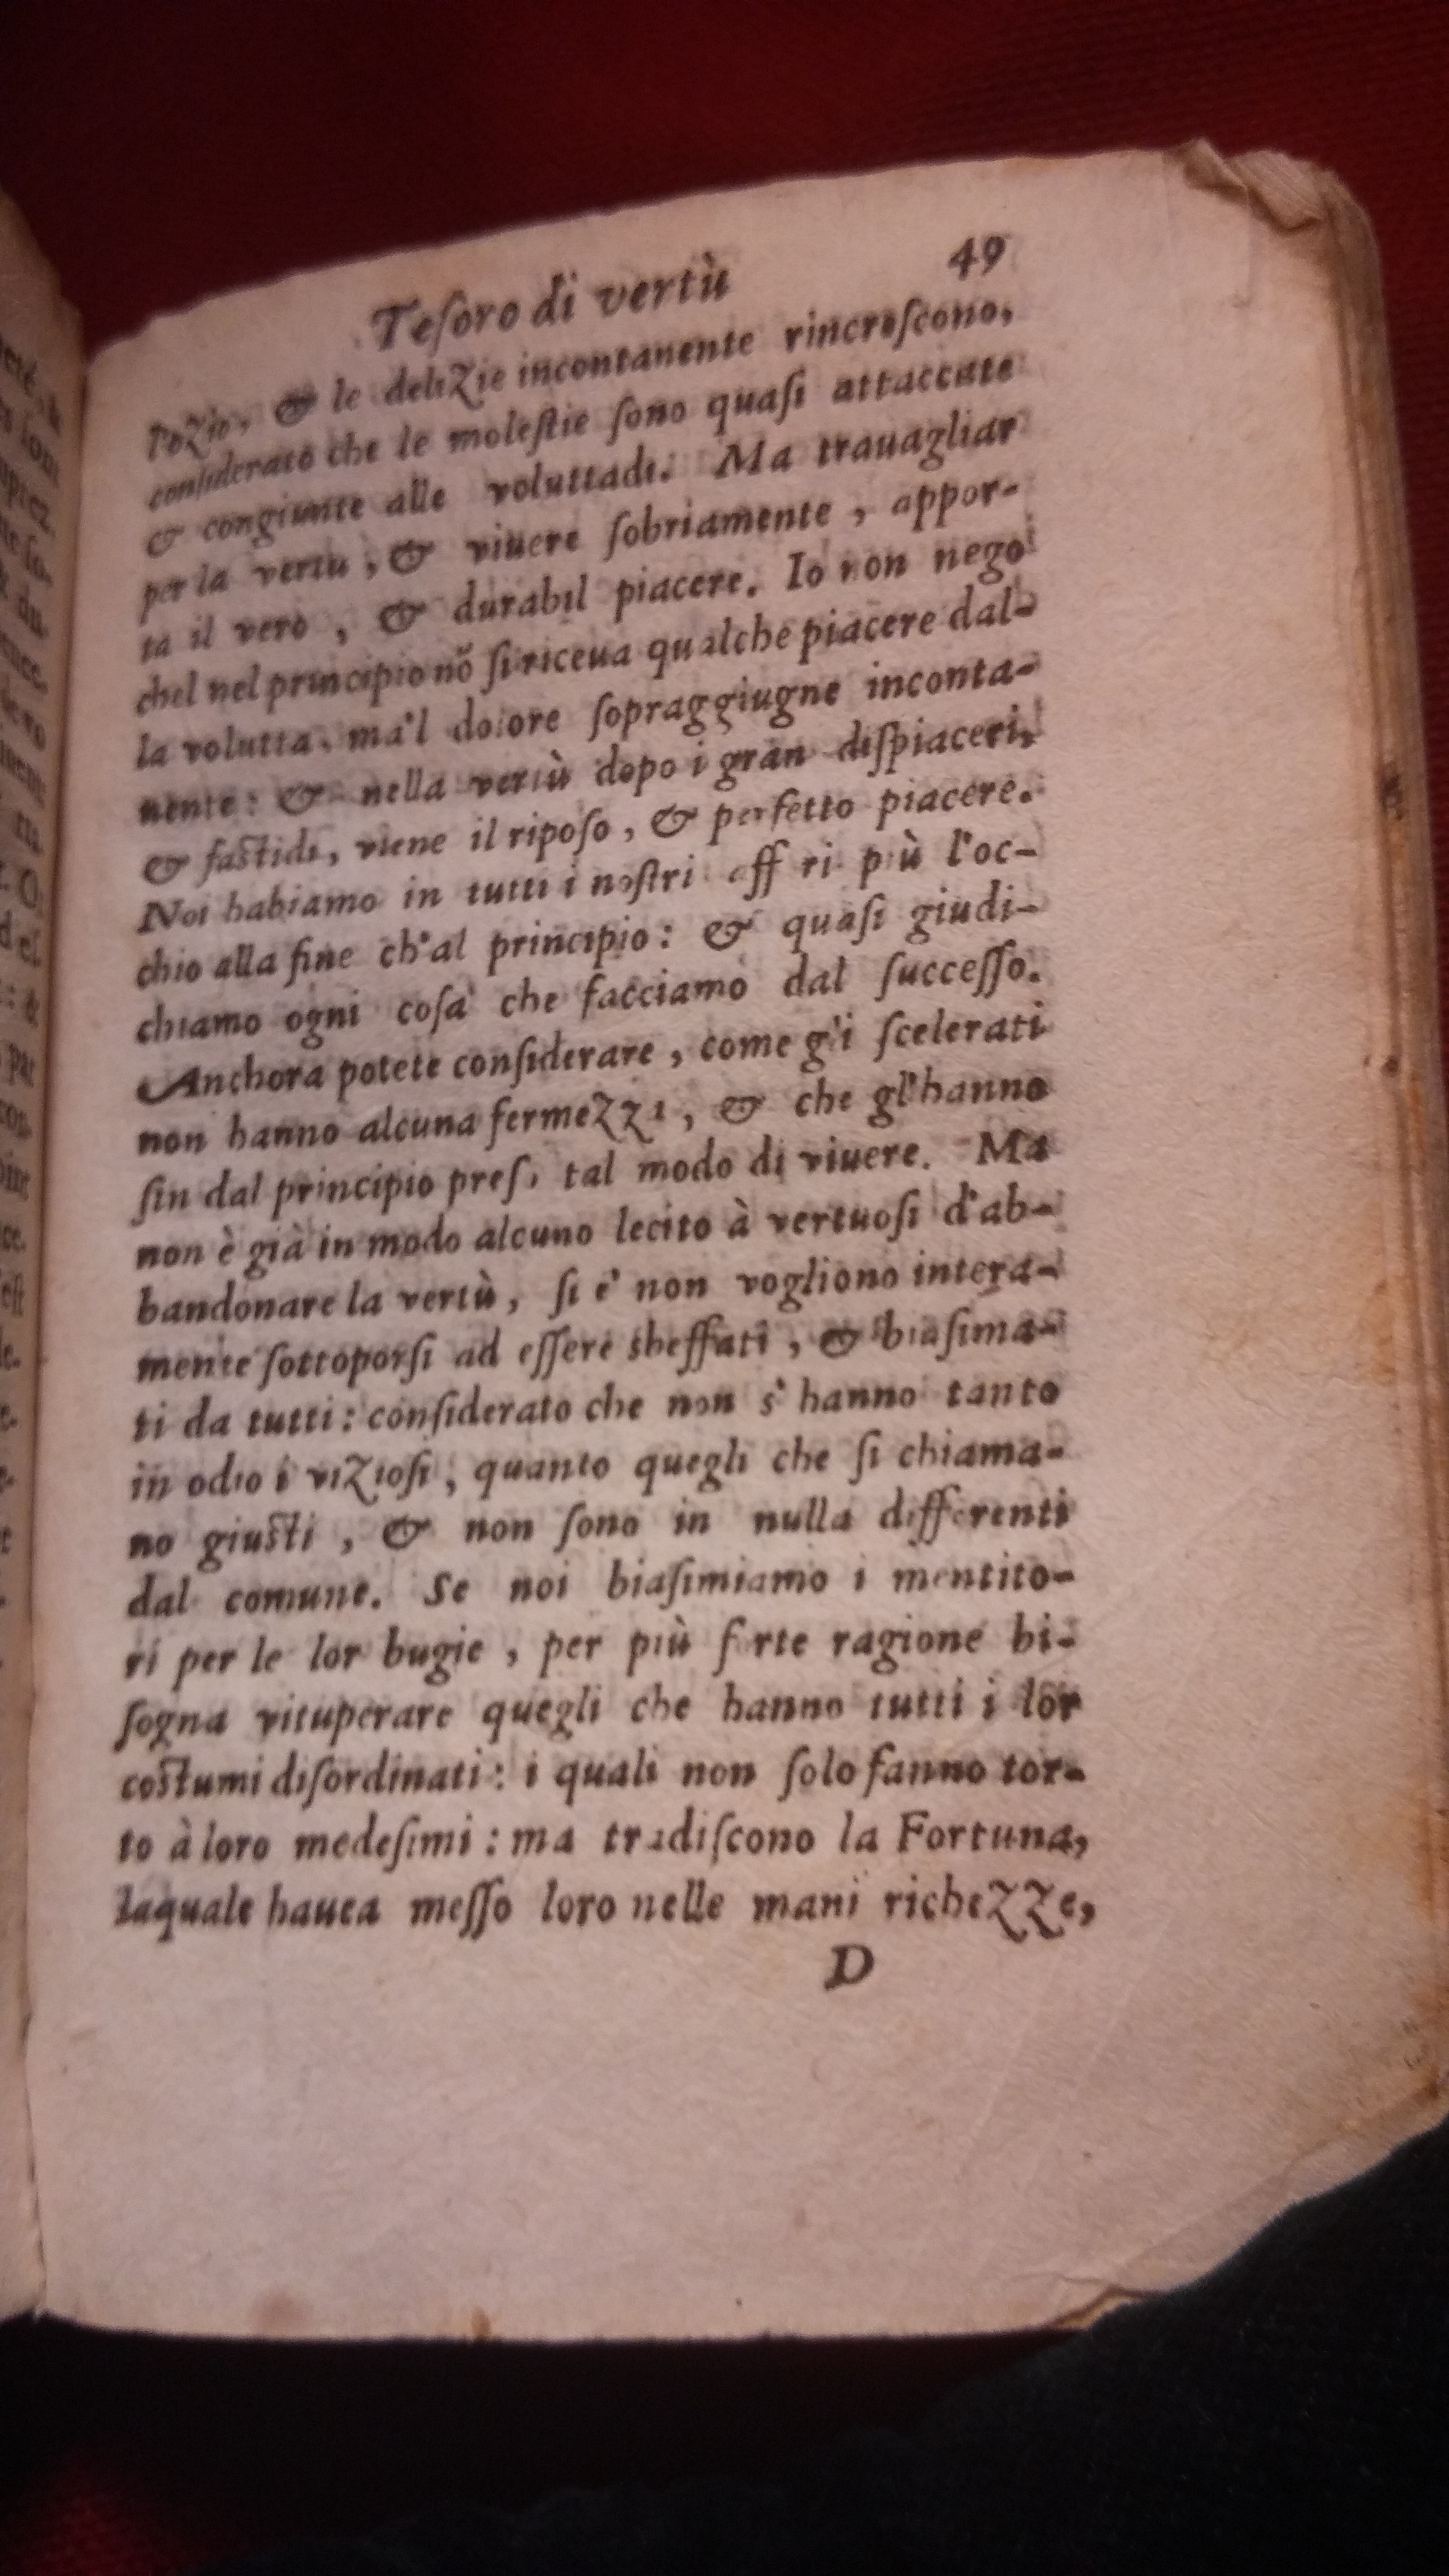 Teſoro di vertù 49
l'oZio, & le deliZie incontanente rincreſcono,
conſiderato che le moleſtie ſono quaſi attaccate
& congiunte alle voluttadi. Ma trauagliar
per la vertu, & viuere ſobriamente, appor-
ta il vero, & durabil piacere. Io non nego
chel nel principio nõ ſi riceua qualche piacere dal-
la volutta, ma'l dolore ſopraggiugne inconta-
nente: & nella vertù dopo i gran diſpiaceri,
& faſtidi, viene il ripoſo, & perfetto piacere.
Noi habiamo in tutti i noſtri aff ri più l'oc-
chio alla fine ch'al principio: & quaſi giudi-
chiamo ogni coſa che facciamo dal ſucceſſo.
Anchora potete conſiderare, come gli ſcelerati
non hanno alcuna fermeZZa, & che gl'hanno
ſin dal principio preſo tal modo di viuere. Ma
non è già in modo alcuno lecito à vertuoſi d'ab-
bandonare la vertù, ſi e' non vogliono intera-
mente ſottoporſi ad eſſere sbeffati, & biaſima-
ti da tutti: conſiderato che non s'hanno tanto
in odio i viZioſi, quanto quegli che ſi chiama-
no giuſti, & non ſono in nulla differenti
dal comune. Se noi biaſimiamo i mentito-
ri per le lor bugie, per più forte ragione bi-
ſogna vituperare quegli che hanno tutti i lor
coſtumi diſordinati: i quali non ſolo fanno tor-
to à loro medeſimi: ma tradiſcono la Fortuna,
laquale hauea meſſo loro nelle mani richeZZe,
D